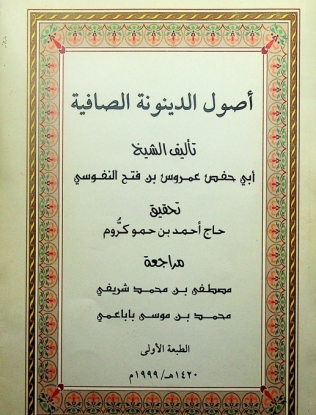 أصول الدينونة الصافية
تأليف الشيخ
أبي حفص عمروس بن فتح النفوسي
تحقيق
حاج أحمد بن حمو كرُّوم
مراجعة
مصطفى بن محمد شريفي
محمد بن موسى باباعمي
الطبعة الأولى
١٤٢٠هـ/١٩٩٩م